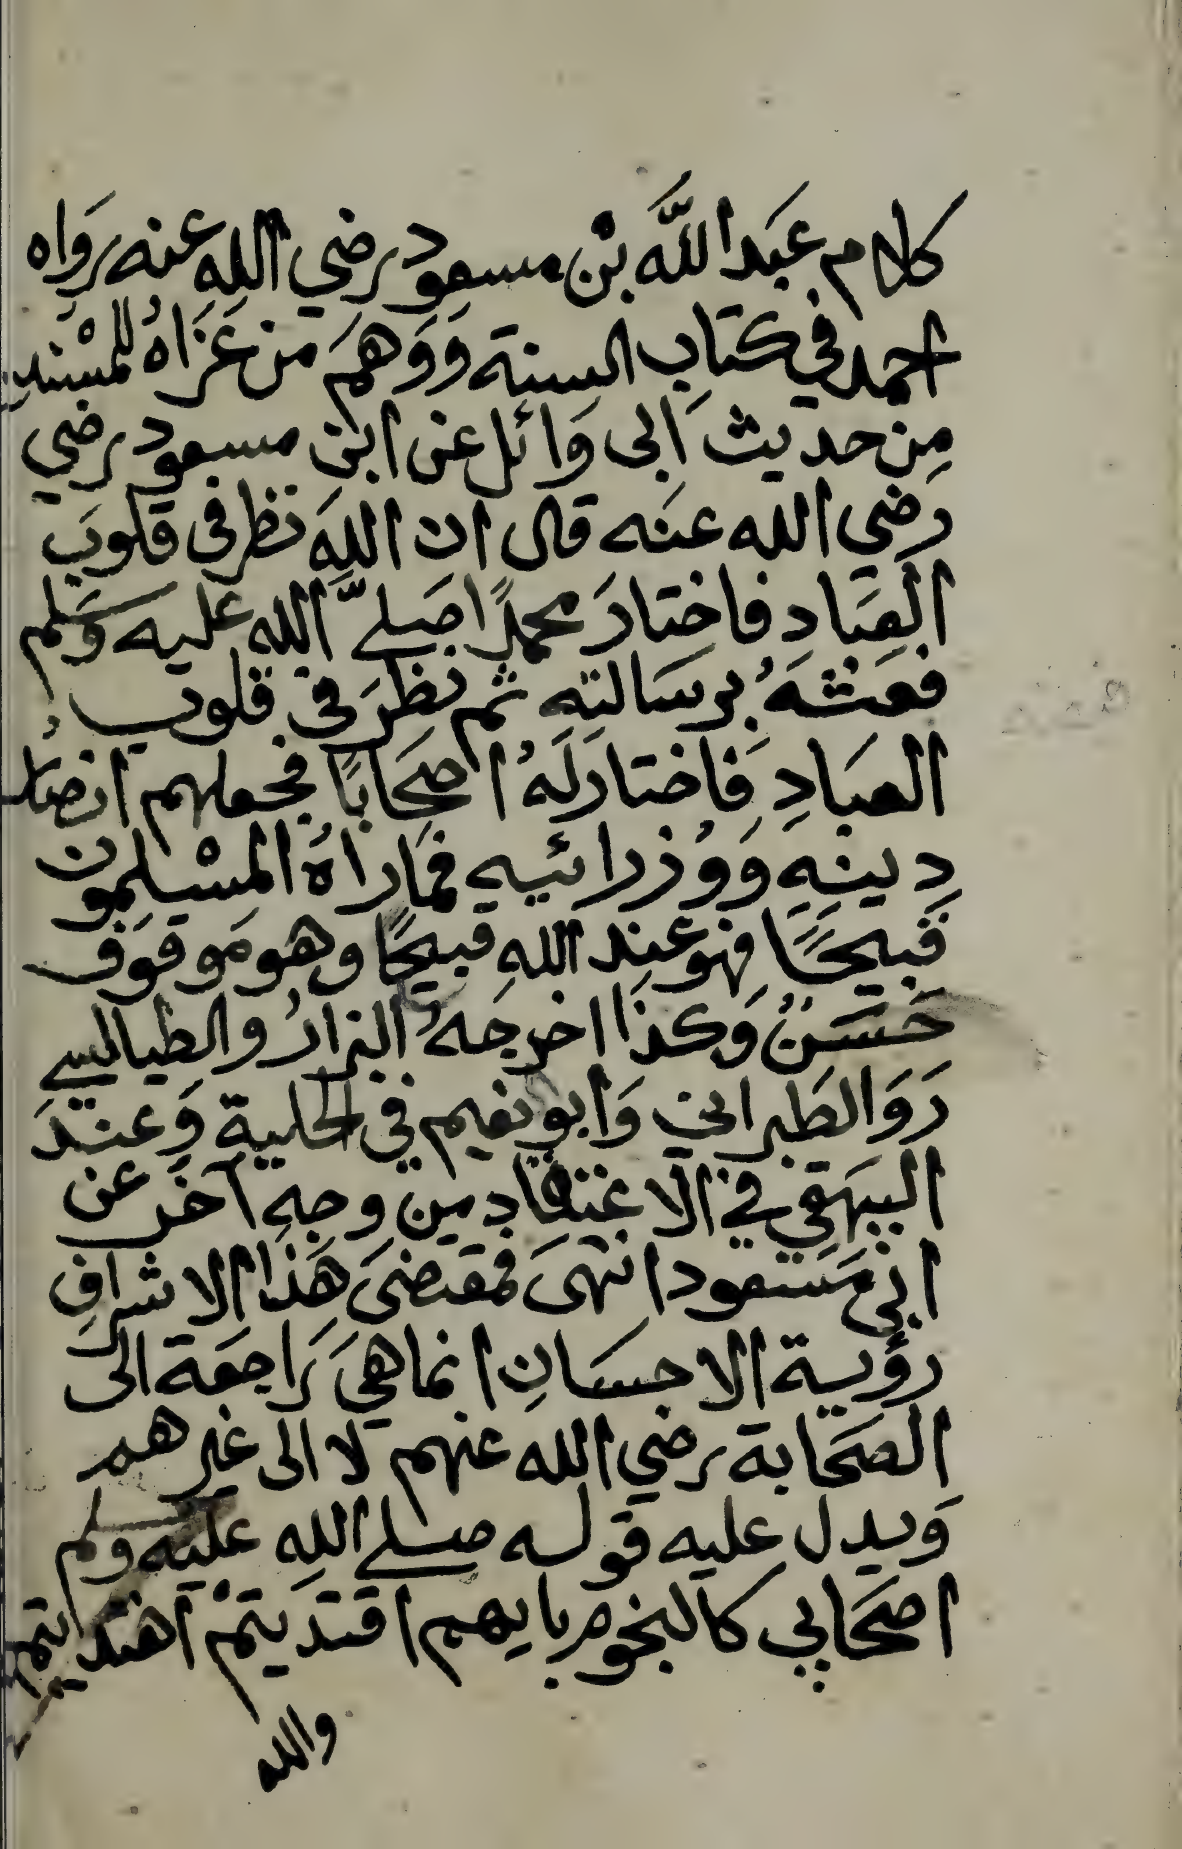 كلام عَبَد اللَّه بْن مسعود رضي اللهِ عنه رَوَاه
احمد في كتابِ السنة وَوَهِمَ من عَزَاهُ للمسْند
مِن حديث اَبى وَائل عن ابن مسعود رضي
رَضي الله عنَه قال ان اللهَ نظر فى قلوبَ
العِبَادِ فاختارَ محمدًا صَلىَّ الله عليه وَسَلم
فبعَثهَ برسَالتِهِ ثم نظرَ فى قلوب
العبَادِ فَاختارَلَهُ اصحَابًا فجعلهم انصَارُ
دِينِهِ وَوُزرائيهِ فمَاراَهُ المسْلِمُون
قَبيحًَا فهو عنِد اللهِ قبيحًا وهو مَوقوَف
حَسَنُ وَكذا اخرجهُ البزارُ والطيالسي
رَوَالطَبراني وَابو نعيم في الحلية وَعندَ
البيهَقي في الاعْتقَادِ من وجهِ آخَر عن
ابنِ مَسَعود انتهَى فمقتضىَ هَذا الاشرافِ
رؤية الاحسَانِ انما هيَ رَاجعَة الى
الصَحَابة رضي الله عنهم لا الى غير هم
وَيدل عليه قوله صلى اللهِ عليه وسلم
اصحَابي كالنجوم بايهم اقتديتمْ اهتديتم
والله